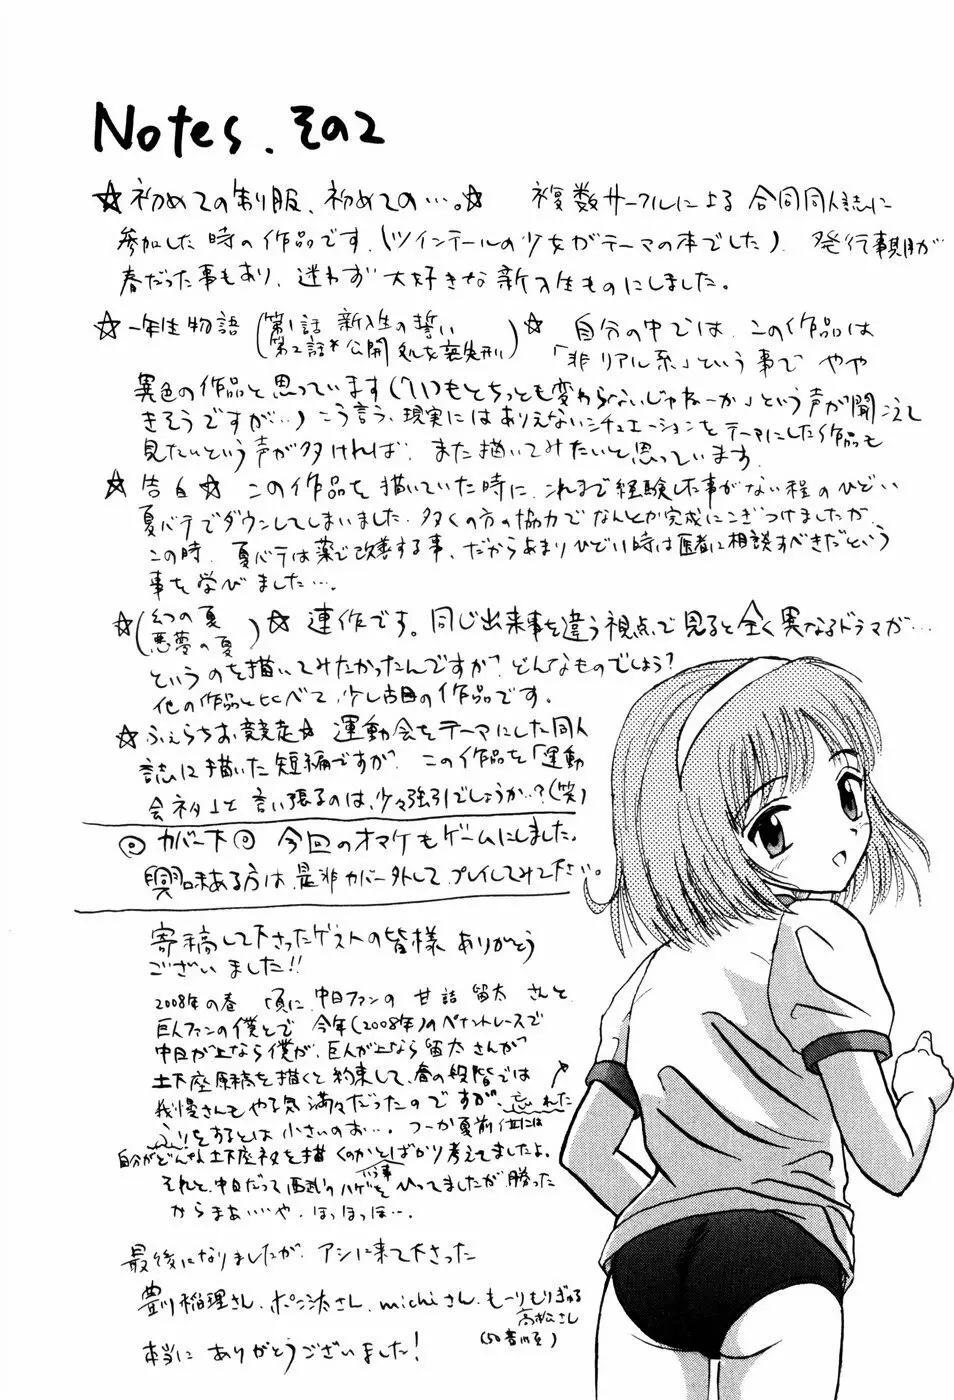 Notes. その2
☆初めての制服、初めての…。☆ 複数サークルによる合同同人誌に
参加した時の作品です。(ツインテールの少女がテーマの本でした)。発行時期が
春だった事もあり、迷わず大好きな新入生ものにしました。
☆一年生物語(第1話 新入生の誓い
第2話 公開処女喪失刑)☆ 自分の中では、この作品は
「非リアル系」という事で やや
異色の作品と思っています(「いつもとちっとも変わらないじゃねーか」という声が聞こえて
きそうですが…)こう言う、現実にはありえないシチュエーションをテーマにした作品も
見たいという声が多ければ、また描いてみたいと思っています。
☆告白☆ この作品を描いていた時に、これまで経験した事がない程のひどい
夏バテでダウンしてしまいました。多くの方の協力でなんとか完成にこぎつけましたが、
この時、夏バテは薬で改善する事、だからあまりひどい時は医者に相談すべきだという
事を学びました…。
☆(幻の夏
悪夢の夏)☆ 連作です。同じ出来事を違う視点で見ると全く異なるドラマが…
というのを描いてみたかったんですが、どんなものでしょう?
他の作品と比べて、少し古目の作品です。
☆ふぇらちお競走☆ 運動会をテーマにした同人
誌に描いた短編ですが、この作品を「運動
会ネタ」と言い張るのは、少々強引でしょうか…?(笑)
◎カバー下◎ 今回のオマケもゲームにしました。
興味ある方は是非カバー外してプレイしてみて下さい。
寄稿して下さったゲストの皆様 ありがとう
ございました!!
2008年の春頃に 中日ファンの甘詰留太さんと
巨人ファンの僕とで 今年(2008年)のペナントレースで
中日が上なら僕が、巨人が上なら留太さんが
土下座原稿を描くと約束して、春の段階では
我慢さんもやる気満々だったのですが、忘れた
ふりをするとは小さいのお…。つーか夏前位には
自分がどんな土下座ネタを描くのかとばかり考えてましたよ。
それと、中日だって西武のハゲをひってましたが勝った
からまあいいや、ほっほっほ…。
最後になりましたが、アシに来て下さった
豊川稲理さん、ポン汰さん、michiさん、もーりもりぎゅる
高松さん
(50音順)
本当に ありがとうございました!